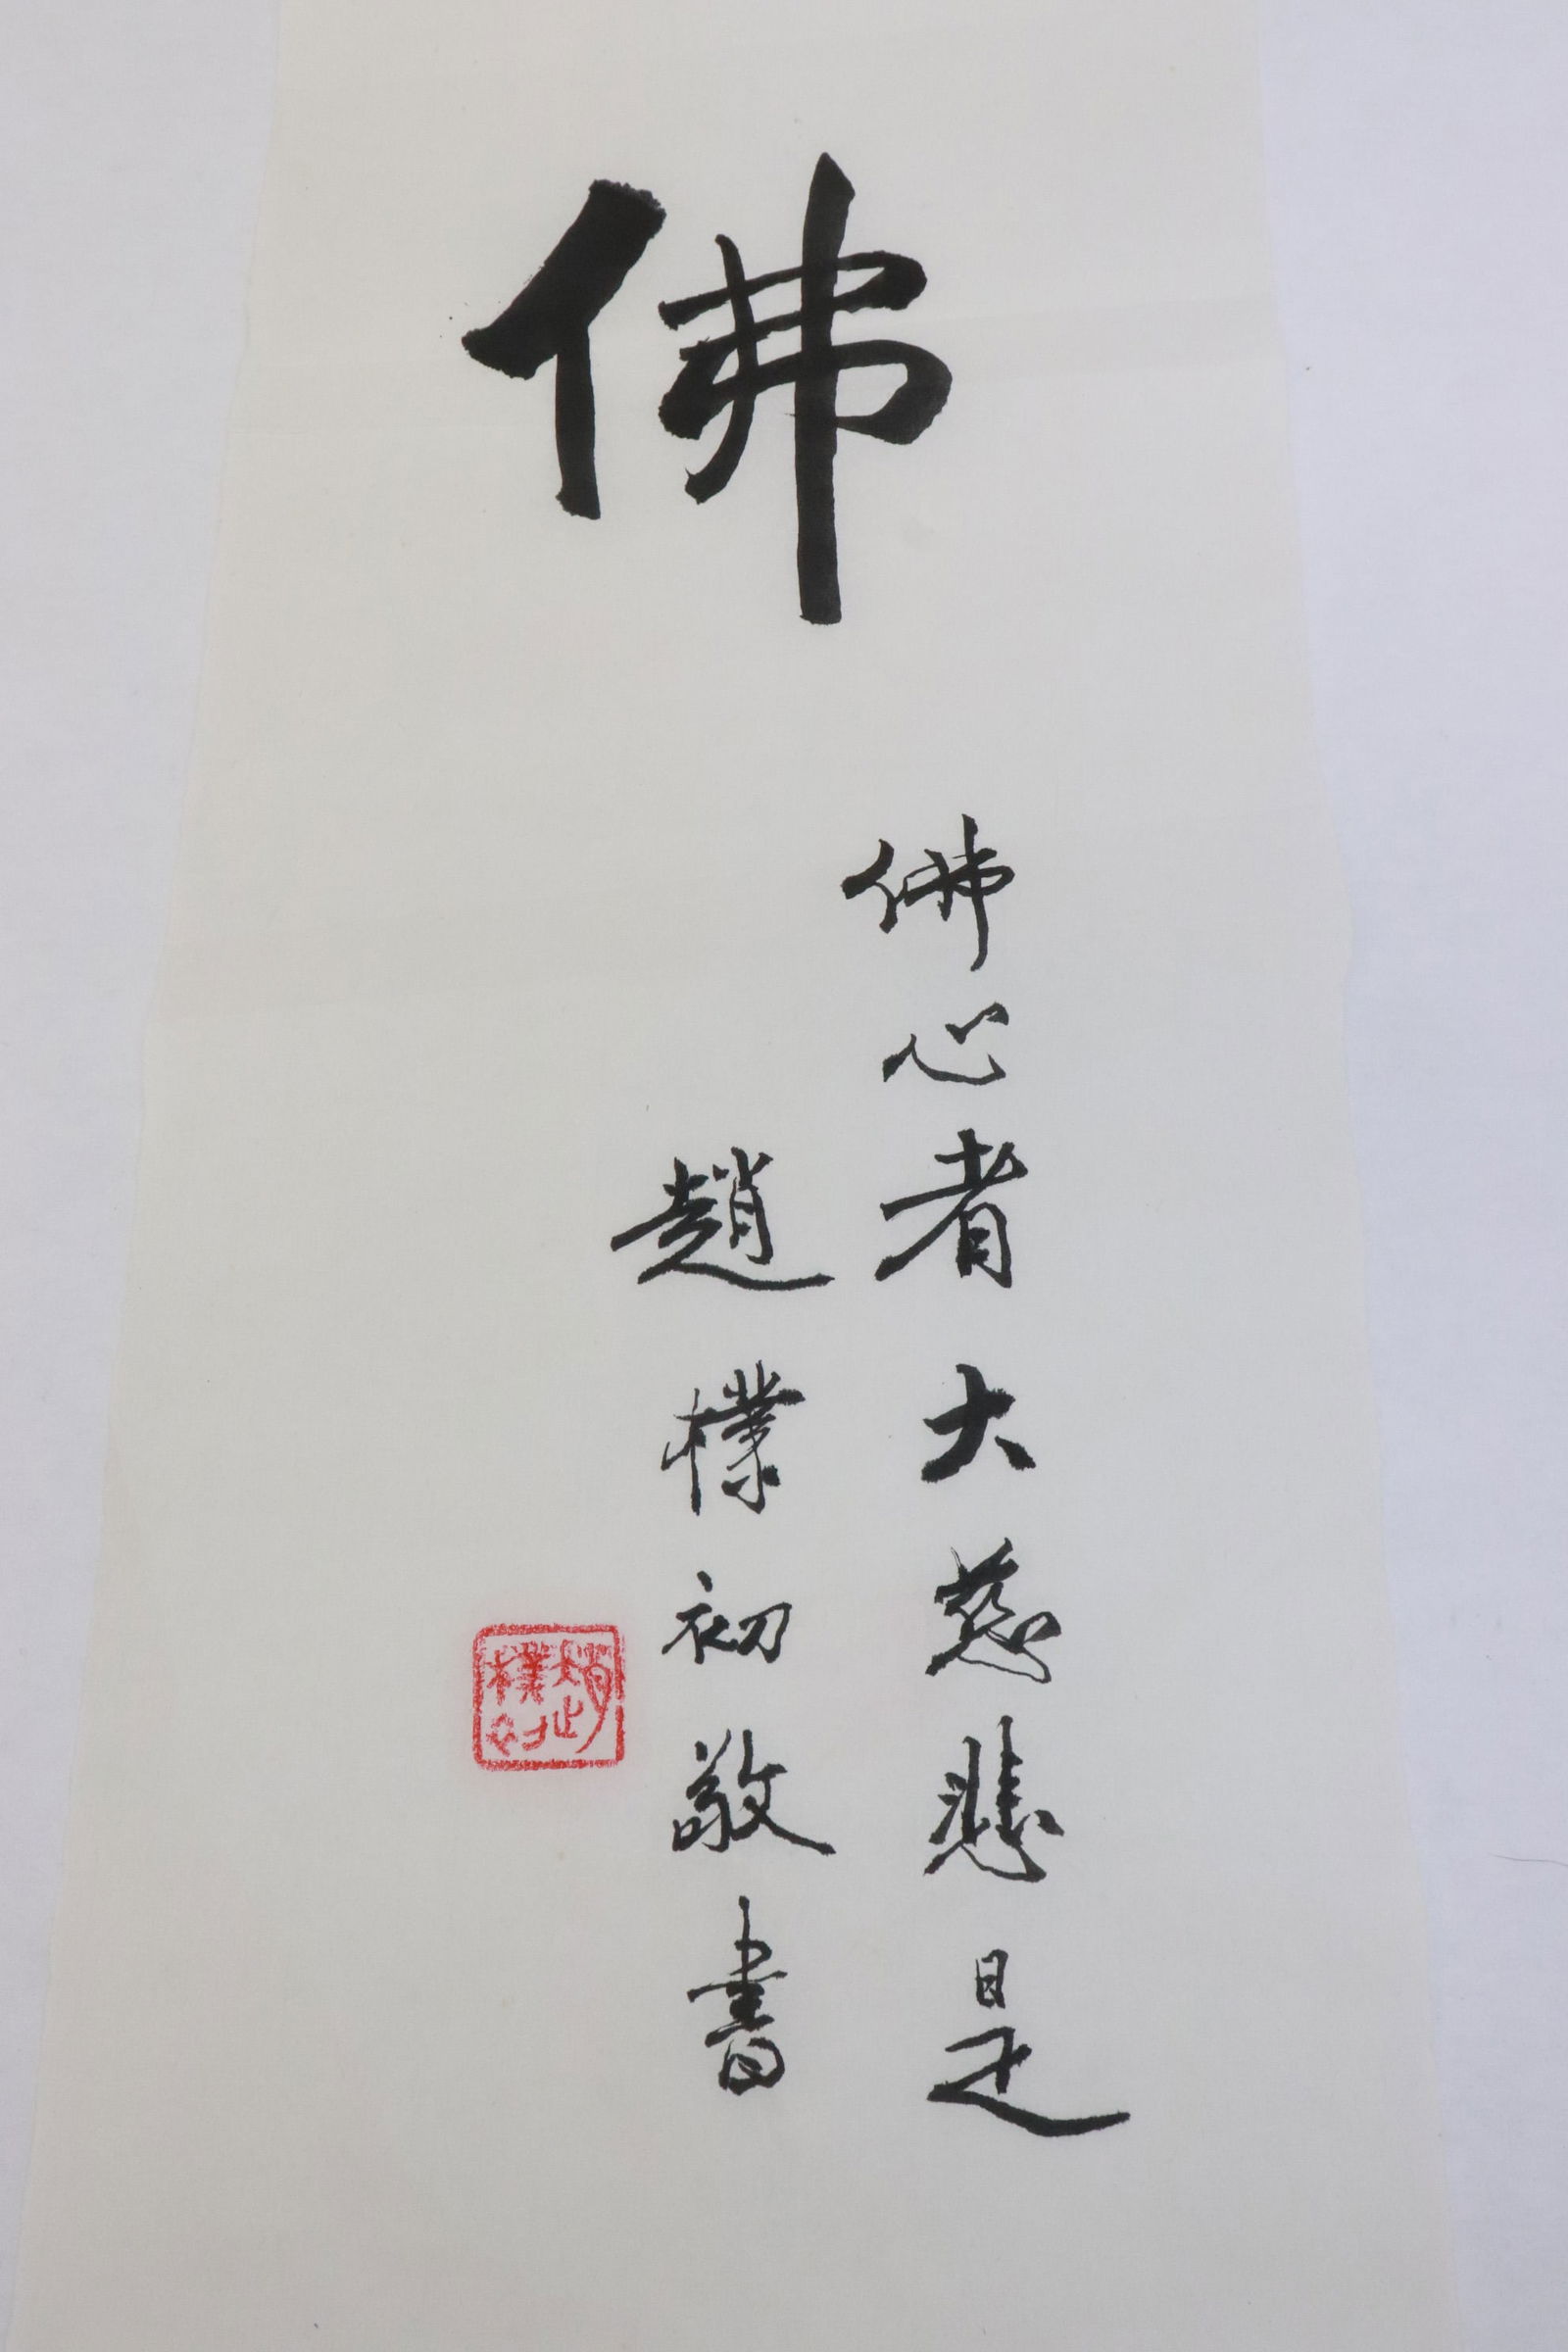 佛
佛心者大慈悲是
趙樸初敬書
趙樸初